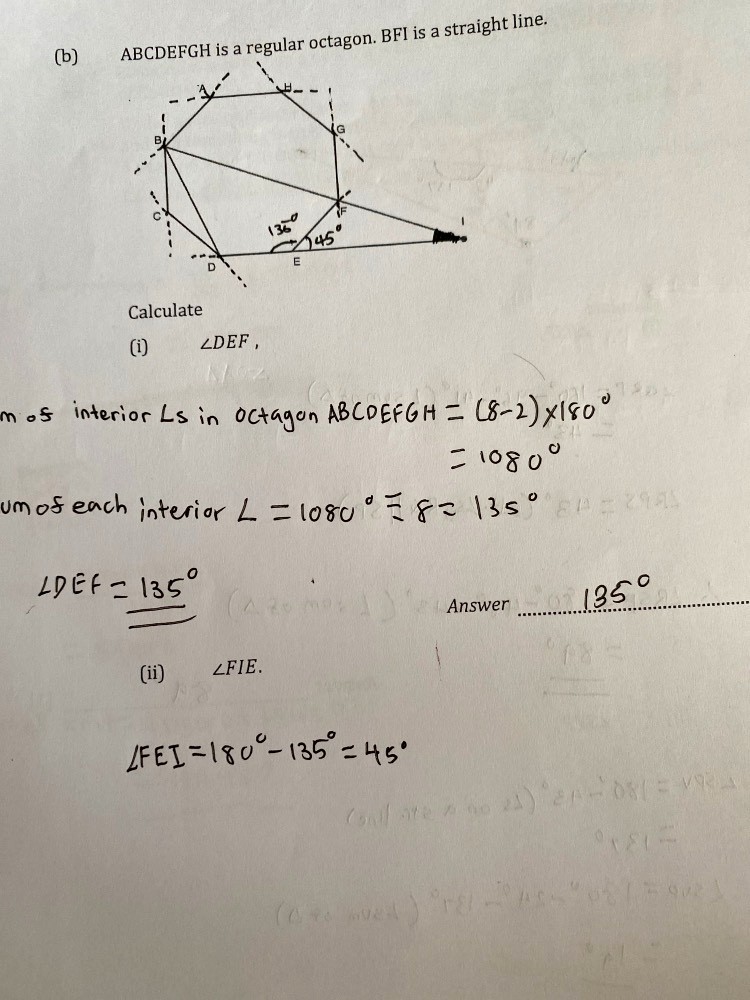 (b) ABCDEFGH is a regular octagon. BFI is a straight line.
A H
B G
C F I
135° 45°
D E
Calculate
(i) ∠DEF ,
m of interior Ls in octagon ABCDEFGH = (8-2)×180°
= 1080°
um of each interior L = 1080° ÷ 8 = 135°
∠DEF = 135°
Answer 135°
(ii) ∠FIE.
∠FEI = 180° - 135° = 45°